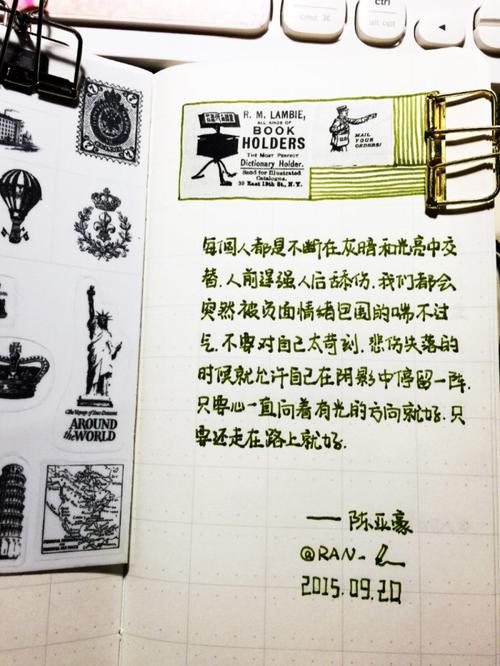 ctrl
cmd ⌘
alt opt
R. M. LAMBIE,
ALL KINDS OF
BOOK
HOLDERS
THE MOST PERFECT
Dictionary Holder.
Send for Illustrated
Catalogue.
39 East 19th St., N.Y.
MAIL
YOUR
ORDERS!
The Voyage of Time Dreams
AROUND
the WORLD
每个人都是不断在灰暗和光亮中交
替.人前逞强人后舔伤.我们都会
突然被负面情绪包围的喘不过
气.不要对自己太苛刻.悲伤失落的
时候就允许自己在阴影中停留一阵.
只要心一直向着有光的方向就好.只
要还走在路上就好.
—— 陈亚豪
@RAN-
2015.09.20